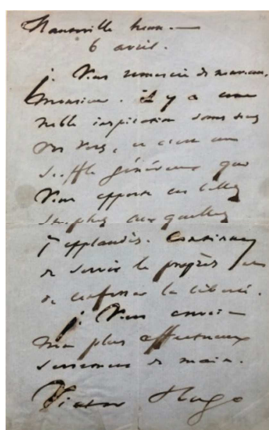 Hauteville house —
6 avril.
je vous remercie de nouveau,
Monsieur. il y a une
noble inspiration dans
vos vers, et c'est un
souffle généreux que
vous apporte ces belles
auxquelles
j'applaudis. Continuez
de servir le progrès et
de confesser la liberté.
je vous envoie
mon plus affectueux
serrement de main.
Victor Hugo